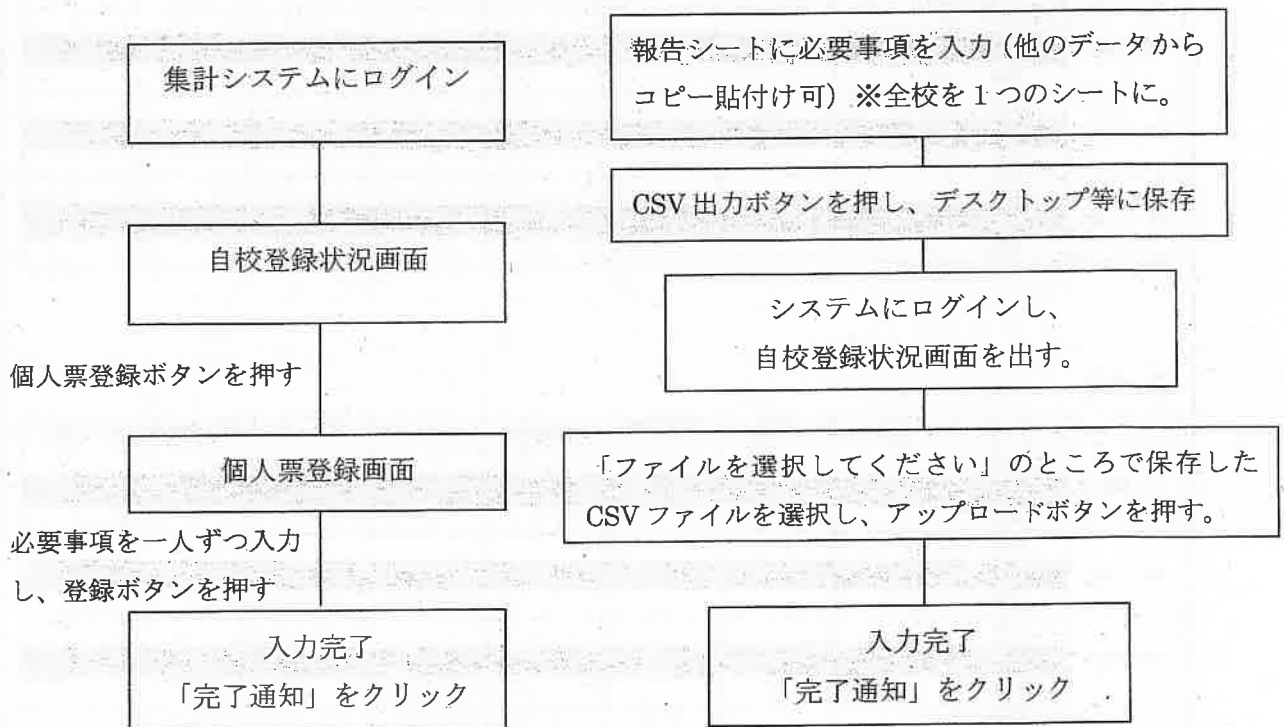 集計システムにログイン
自校登録状況画面
個人票登録ボタンを押す
個人票登録画面
必要事項を一人ずつ入力
し、登録ボタンを押す
入力完了
「完了通知」をクリック
報告シートに必要事項を入力(他のデータから
コピー貼付け可)※全校を1つのシートに。
CSV出力ボタンを押し、デスクトップ等に保存
システムにログインし、
自校登録状況画面を出す。
「ファイルを選択してください」のところで保存した
CSVファイルを選択し、アップロードボタンを押す。
入力完了
「完了通知」をクリック